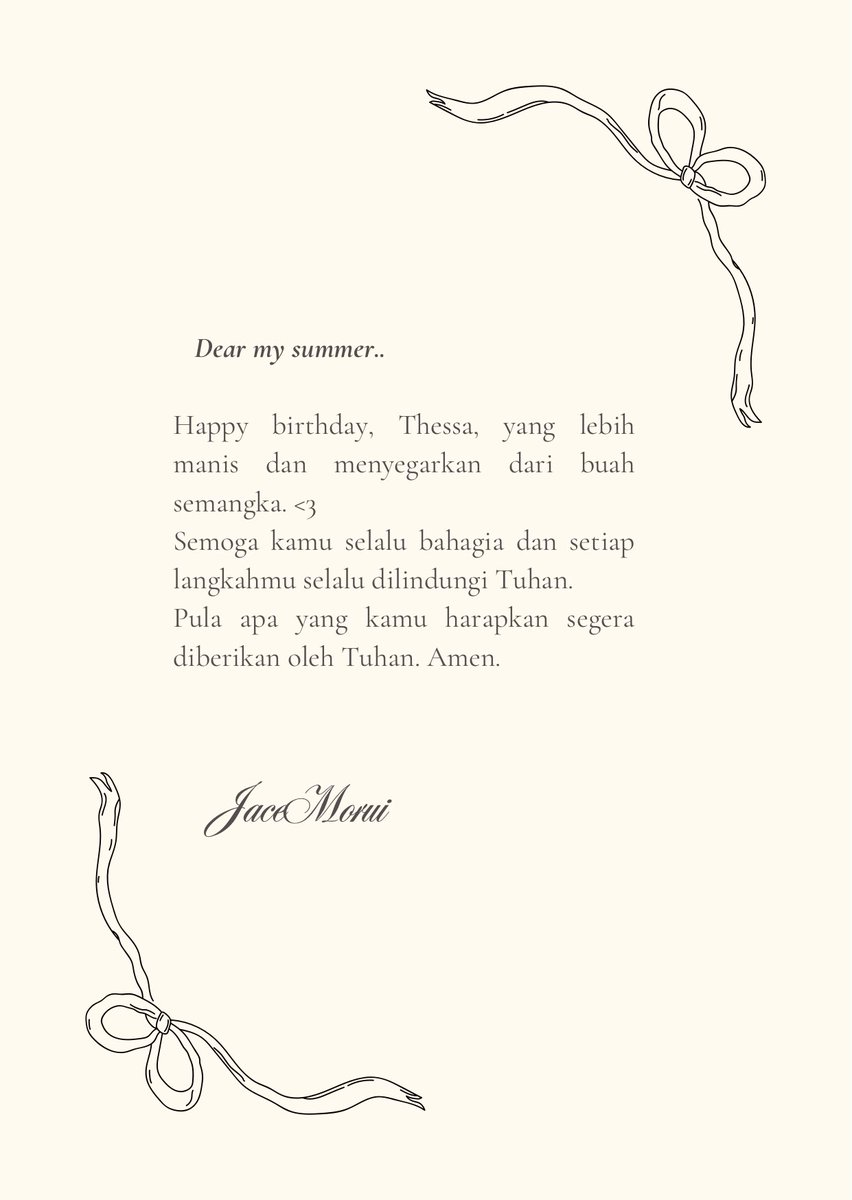 Dear my summer..
Happy birthday, Thessa, yang lebih
manis dan menyegarkan dari buah
semangka. <3
Semoga kamu selalu bahagia dan setiap
langkahmu selalu dilindungi Tuhan.
Pula apa yang kamu harapkan segera
diberikan oleh Tuhan. Amen.
JaceMorui